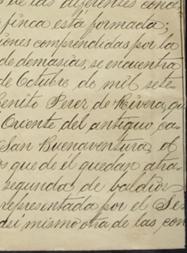 de las diferentes conce
finca esta formada;
iones comprendidas por la
de demasias, se encuentra
de Octubre de mil sete
Benito Perez de Rivera, qu
Oriente del antiguo ca
San Buenaventura, a
os que de él quedan atra
segunda, de baldios
representada por el Se
asi mismo otra de las con